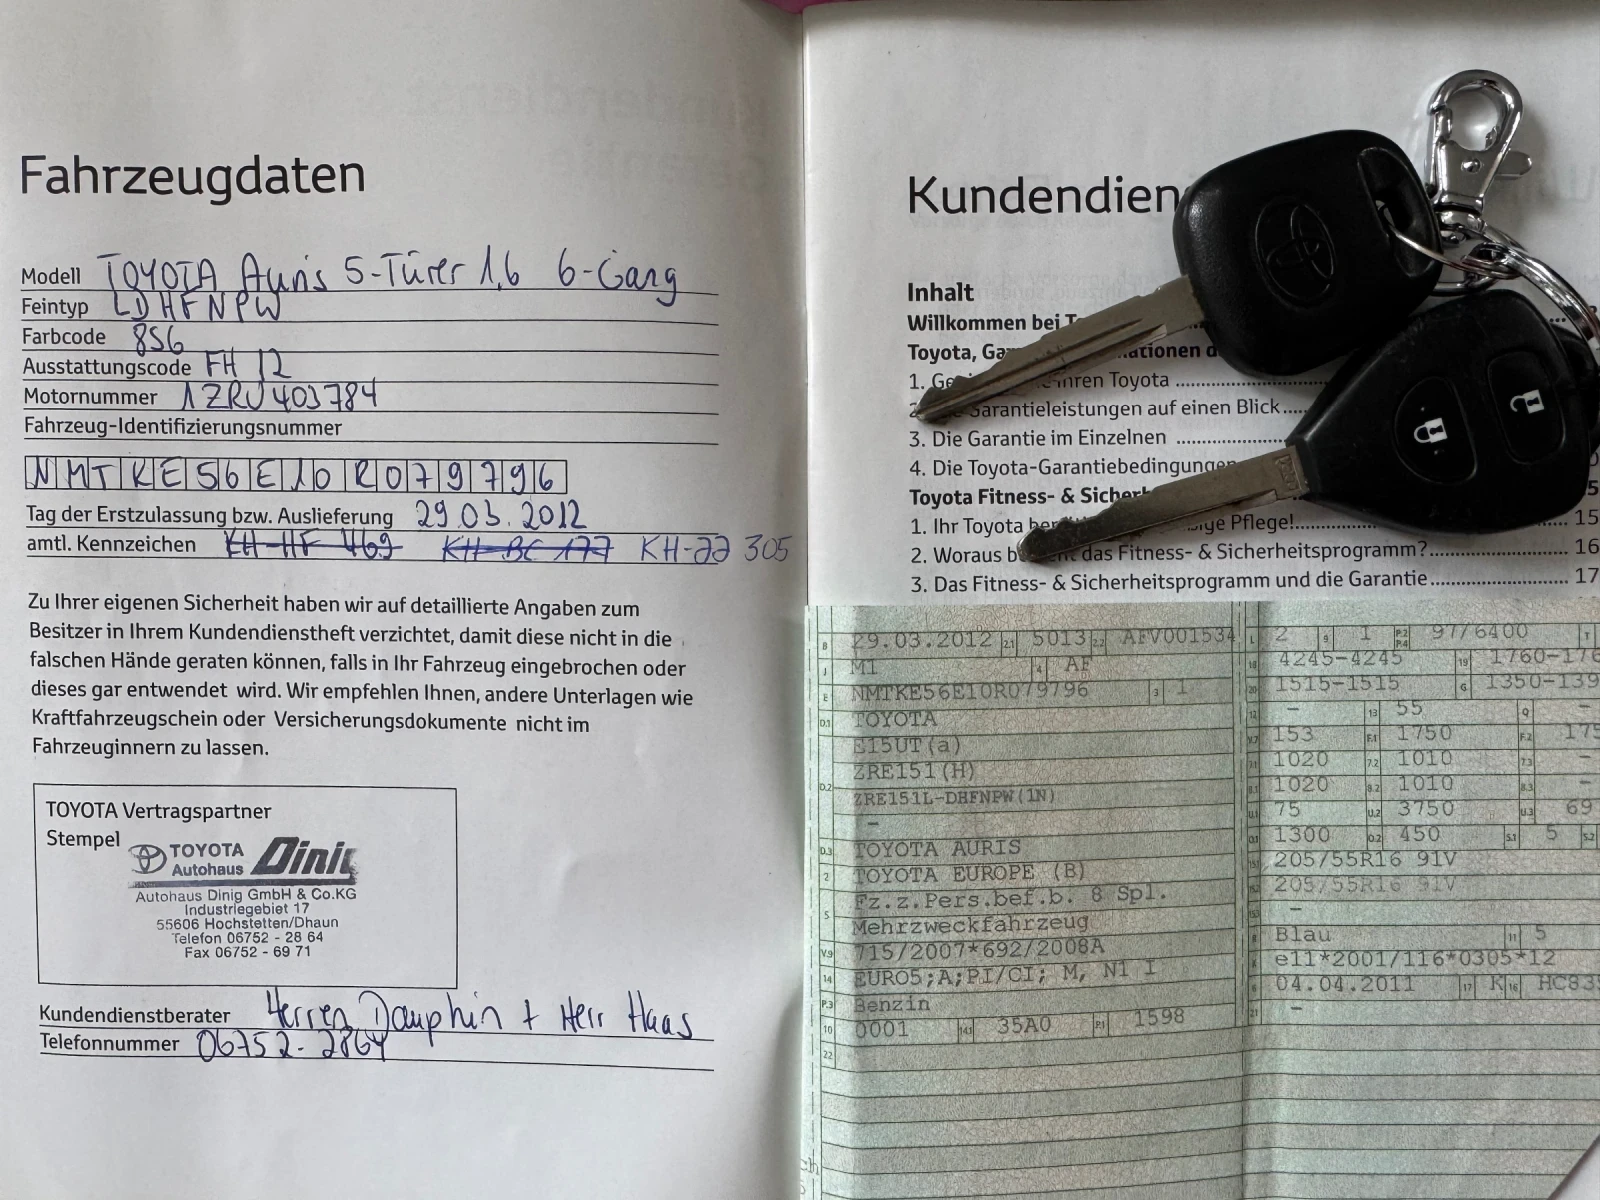 Fahrzeugdaten
Modell TOYOTA Auris 5-Türer 1,6 6-Gang
Feintyp LDHFNPW
Farbcode 8S6
Ausstattungscode FH 12
Motornummer 1ZRU403784
Fahrzeug-Identifizierungsnummer
NMTKE56E10R079796
Tag der Erstzulassung bzw. Auslieferung 29.03.2012
amtl. Kennzeichen KH-HF 469 KH-BC 177 KH-JJ 305
Zu Ihrer eigenen Sicherheit haben wir auf detaillierte Angaben zum
Besitzer in Ihrem Kundendienstheft verzichtet, damit diese nicht in die
falschen Hände geraten können, falls in Ihr Fahrzeug eingebrochen oder
dieses gar entwendet wird. Wir empfehlen Ihnen, andere Unterlagen wie
Kraftfahrzeugschein oder Versicherungsdokumente nicht im
Fahrzeuginnern zu lassen.
TOYOTA Vertragspartner
Stempel
TOYOTA
Autohaus Dinig
Autohaus Dinig GmbH & Co.KG
Industriegebiet 17
55606 Hochstetten/Dhaun
Telefon 06752 - 28 64
Fax 06752 - 69 71
Kundendienstberater Herren Dauphin + Herr Haas
Telefonnummer 06752-2864
Kundendien
Inhalt
Willkommen bei
Toyota,
1. Ihren Toyota
2. Garantieleistungen auf einen Blick
3. Die Garantie im Einzelnen
4. Die Toyota-Garantiebedingungen
Toyota Fitness- & Sicher
1. Ihr Toyota Pflege! 15
2. Woraus das Fitness- & Sicherheitsprogramm? 16
3. Das Fitness- & Sicherheitsprogramm und die Garantie 17
B 29.03.2012 2.1 5013 2.2 AFV001534
J M1 4 AF
E NMTKE56E10R079796 3 1
D.1 TOYOTA
E15UT(a)
D.2 ZRE151(H)
ZRE151L-DHFNPW(1N)
–
D.3 TOYOTA AURIS
2 TOYOTA EUROPE (B)
5 Fz.z.Pers.bef.b. 8 Spl.
Mehrzweckfahrzeug
V.9 715/2007*692/2008A
14 EURO5;A;PI/CI; M, N1 I
P.3 Benzin
10 0001 14.1 35A0 P.1 1598
22
L 2 9 1 P.2 P.4 97/6400 T
18 4245-4245 19 1760-176
20 1515-1515 G 1350-139
12 – 13 55 Q –
V.7 153 F.1 1750 F.2 175
7.1 1020 7.2 1010 7.3 –
8.1 1020 8.2 1010 8.3 –
U.1 75 U.2 3750 U.3 69
O.1 1300 O.2 450 S.1 5 S.2
15.1 205/55R16 91V
15.2 205/55R16 91V
15.3 –
R Blau 11 5
K e11*2001/116*0305*12
6 04.04.2011 17 K 16 HC835
21 –